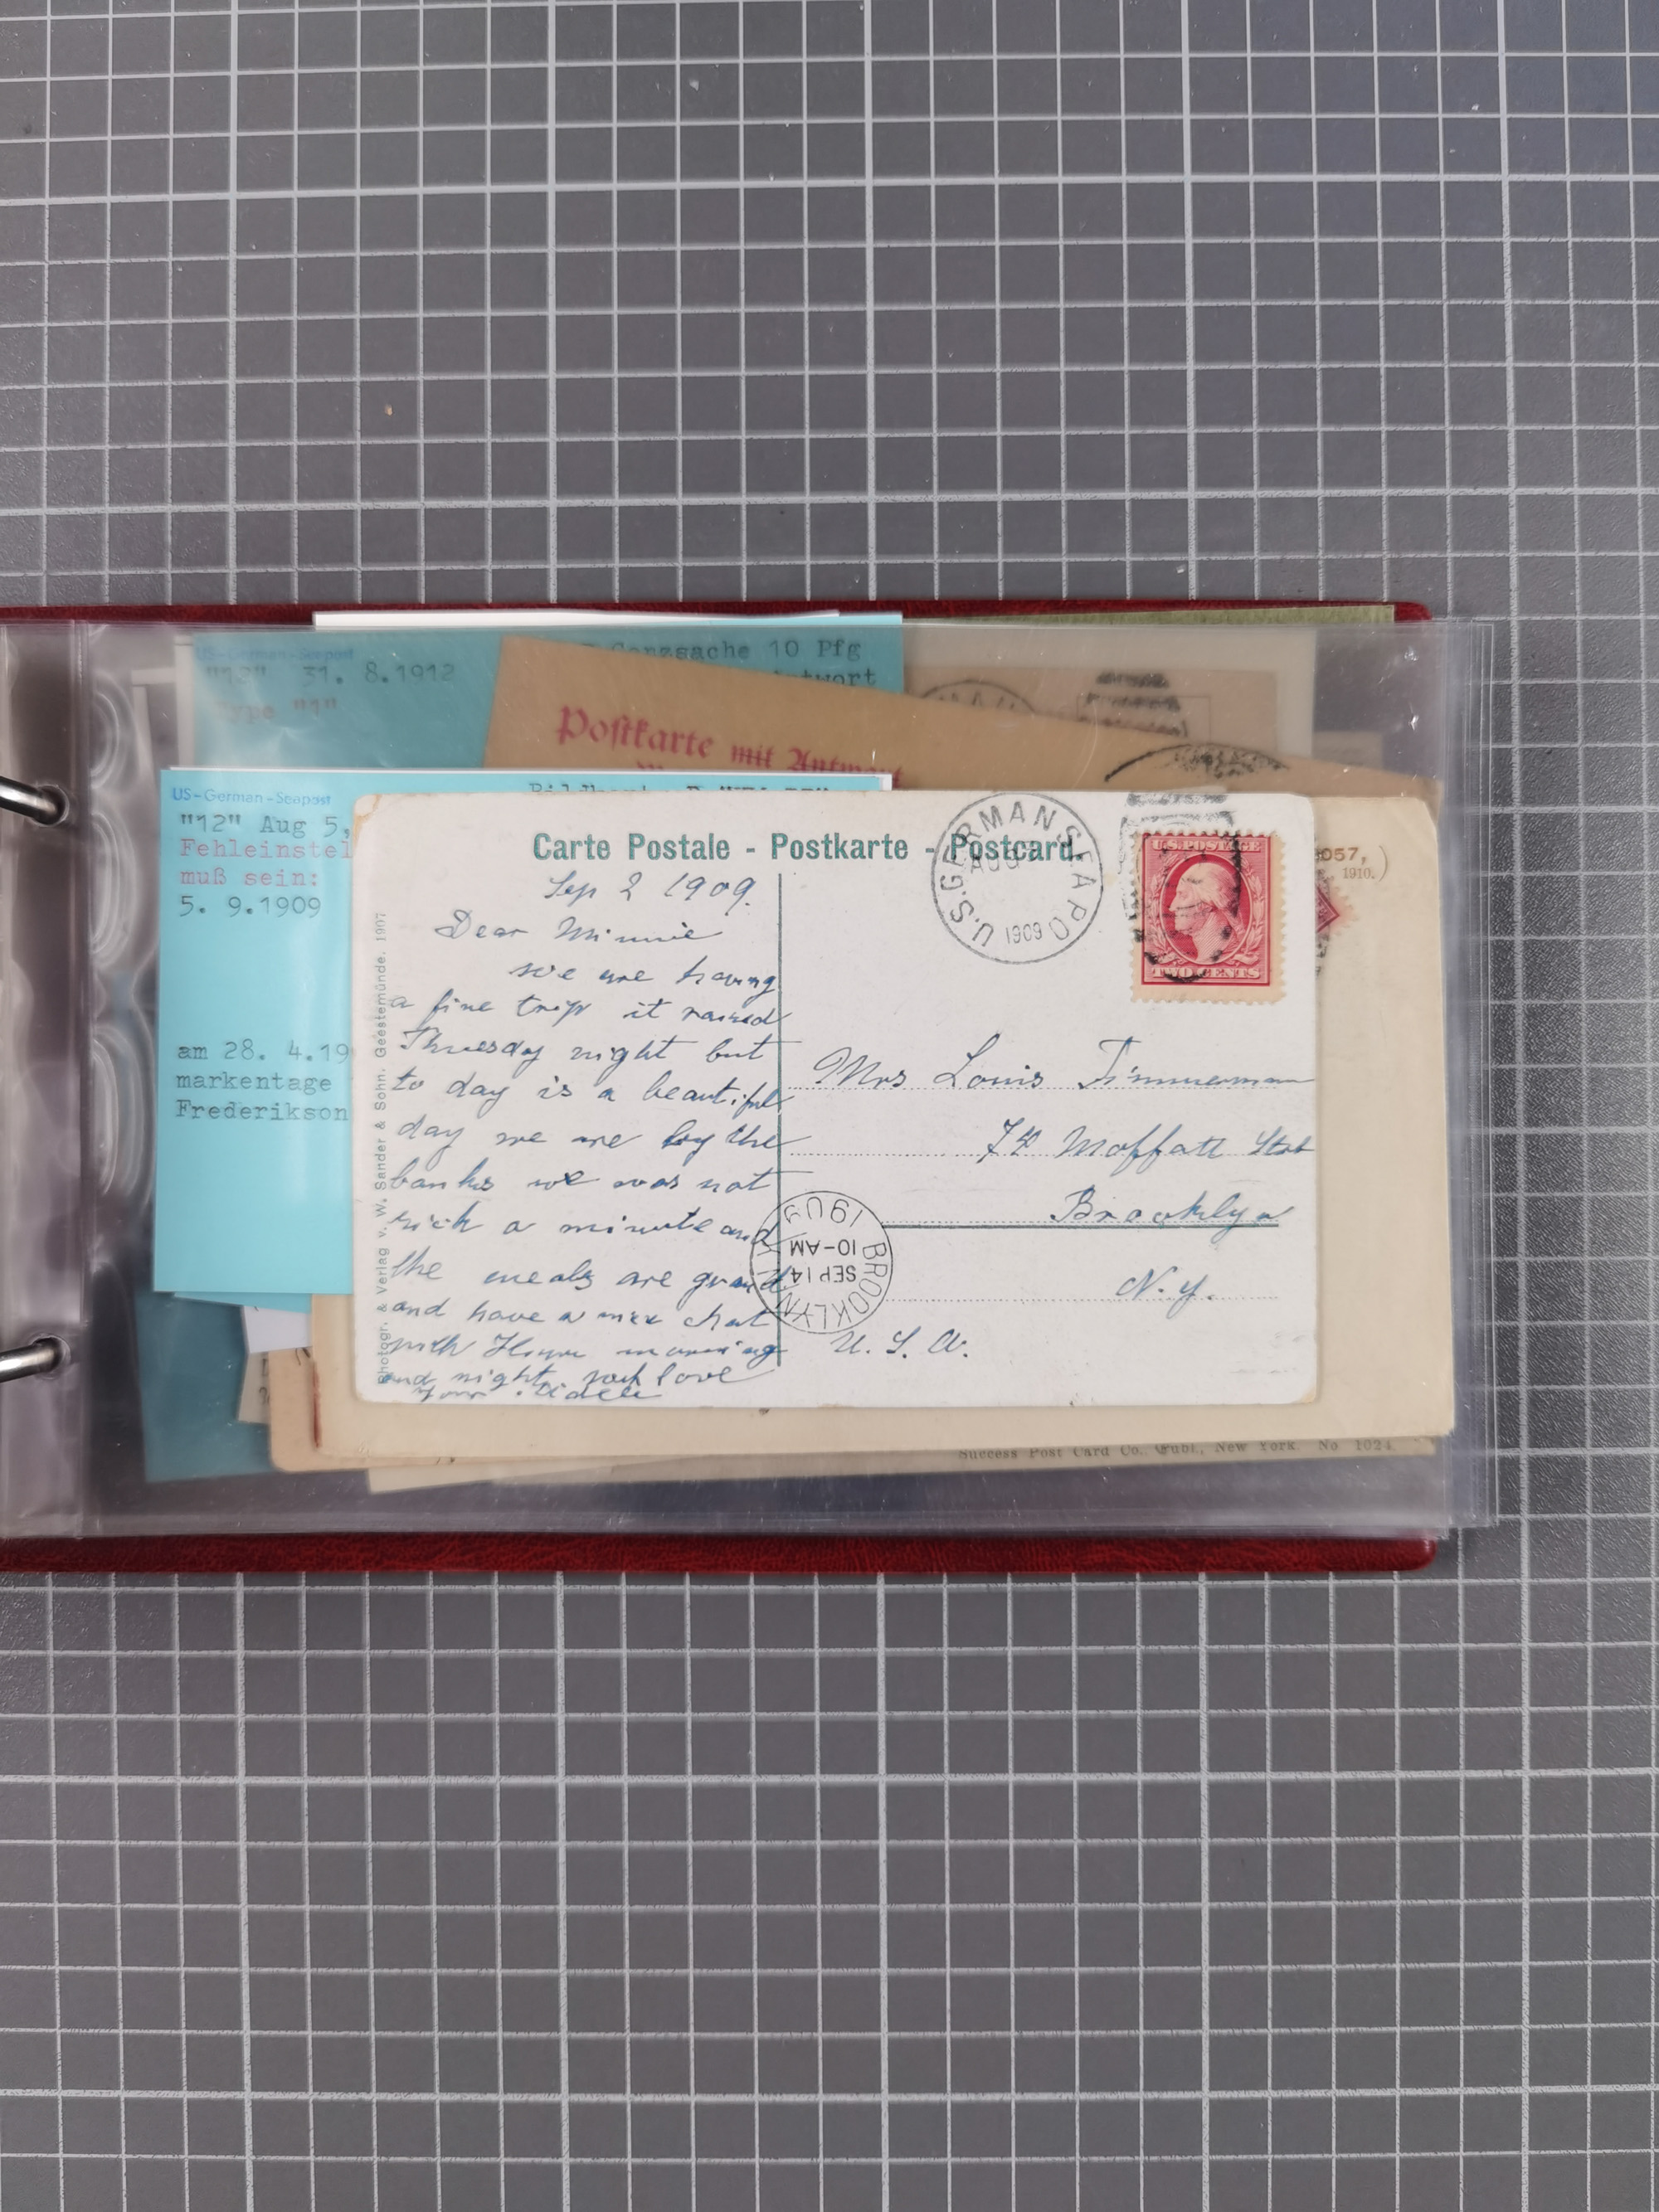 US-German-Seapost
"12" 31. 8.1912
Type "1"
Ganzsache 10 Pfg
Postkarte mit Antwort
US-German-Seapost
"12" Aug 5,
Fehleinstel
muß sein:
5. 9.1909
am 28. 4.19
markentage
Frederikson
Carte Postale - Postkarte - Postcard.
Photogr. & Verlag v. W. Sander & Sohn. Geestemünde. 1907
Sep 2 1909.
Dear Minnie
we are having
a fine trip it rained
Thuesday night but
to day is a beautiful
day we are by the
banks we was not
sick a minute and
the meals are grand
and have a nice chat
with
and night love
U.S. GERMAN SEA PO
AUG
1909
U.S. POSTAGE
TWO CENTS
Mrs Louis Timmerman
Moffatt
Brooklyn
N.Y.
U. S. A.
BROOKLYN
SEP 14
10-AM
1909
057,
1910.)
Success Post Card Co., Publ., New York. No 1024.